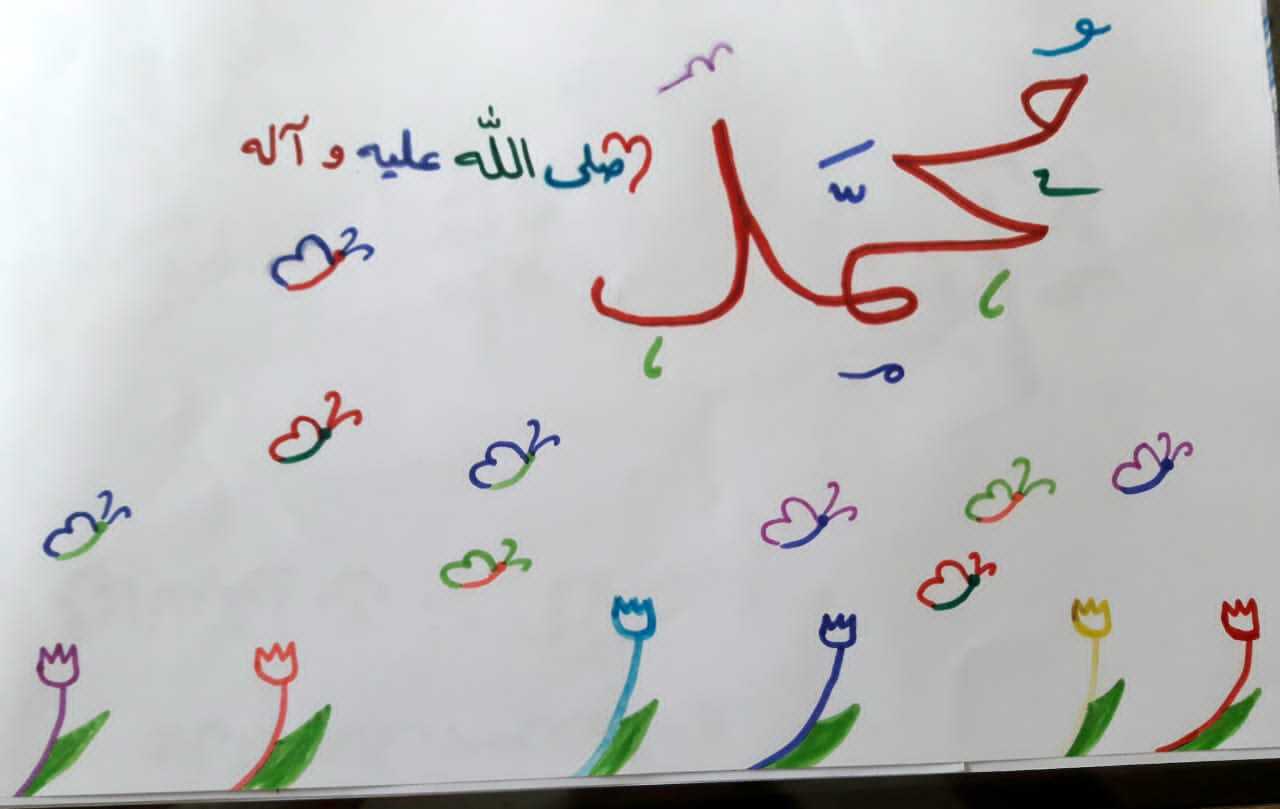 مُحَمَّد صلى اللّٰه عليه و آله